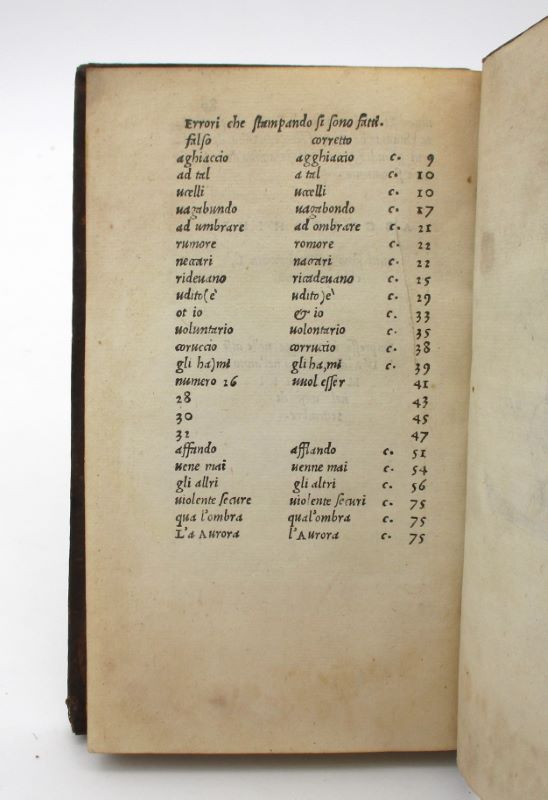 Errori che stampando si sono fatti.
falso corretto
aghiaccio agghiaccio c. 9
ad tal a tal c. 10
ucelli uccelli c. 10
uagabundo uagabondo c. 17
ad umbrare ad ombrare c. 21
rumore romore c. 22
neccari naccari c. 22
rideuano ricadeuano c. 25
udito(è udito)è c. 29
ot io & io c. 33
uoluntario uolontario c. 35
coruccio corruccio c. 38
gli ha)mi gli ha,mi c. 39
numero 26 uuol esser 41
28 43
30 45
32 47
affando afflando c. 51
uene mai uenne mai c. 54
gli allri gli altri c. 56
uiolente secure uiolente securi c. 75
qua l'ombra qual'ombra c. 75
L'a Aurora l'Aurora c. 75